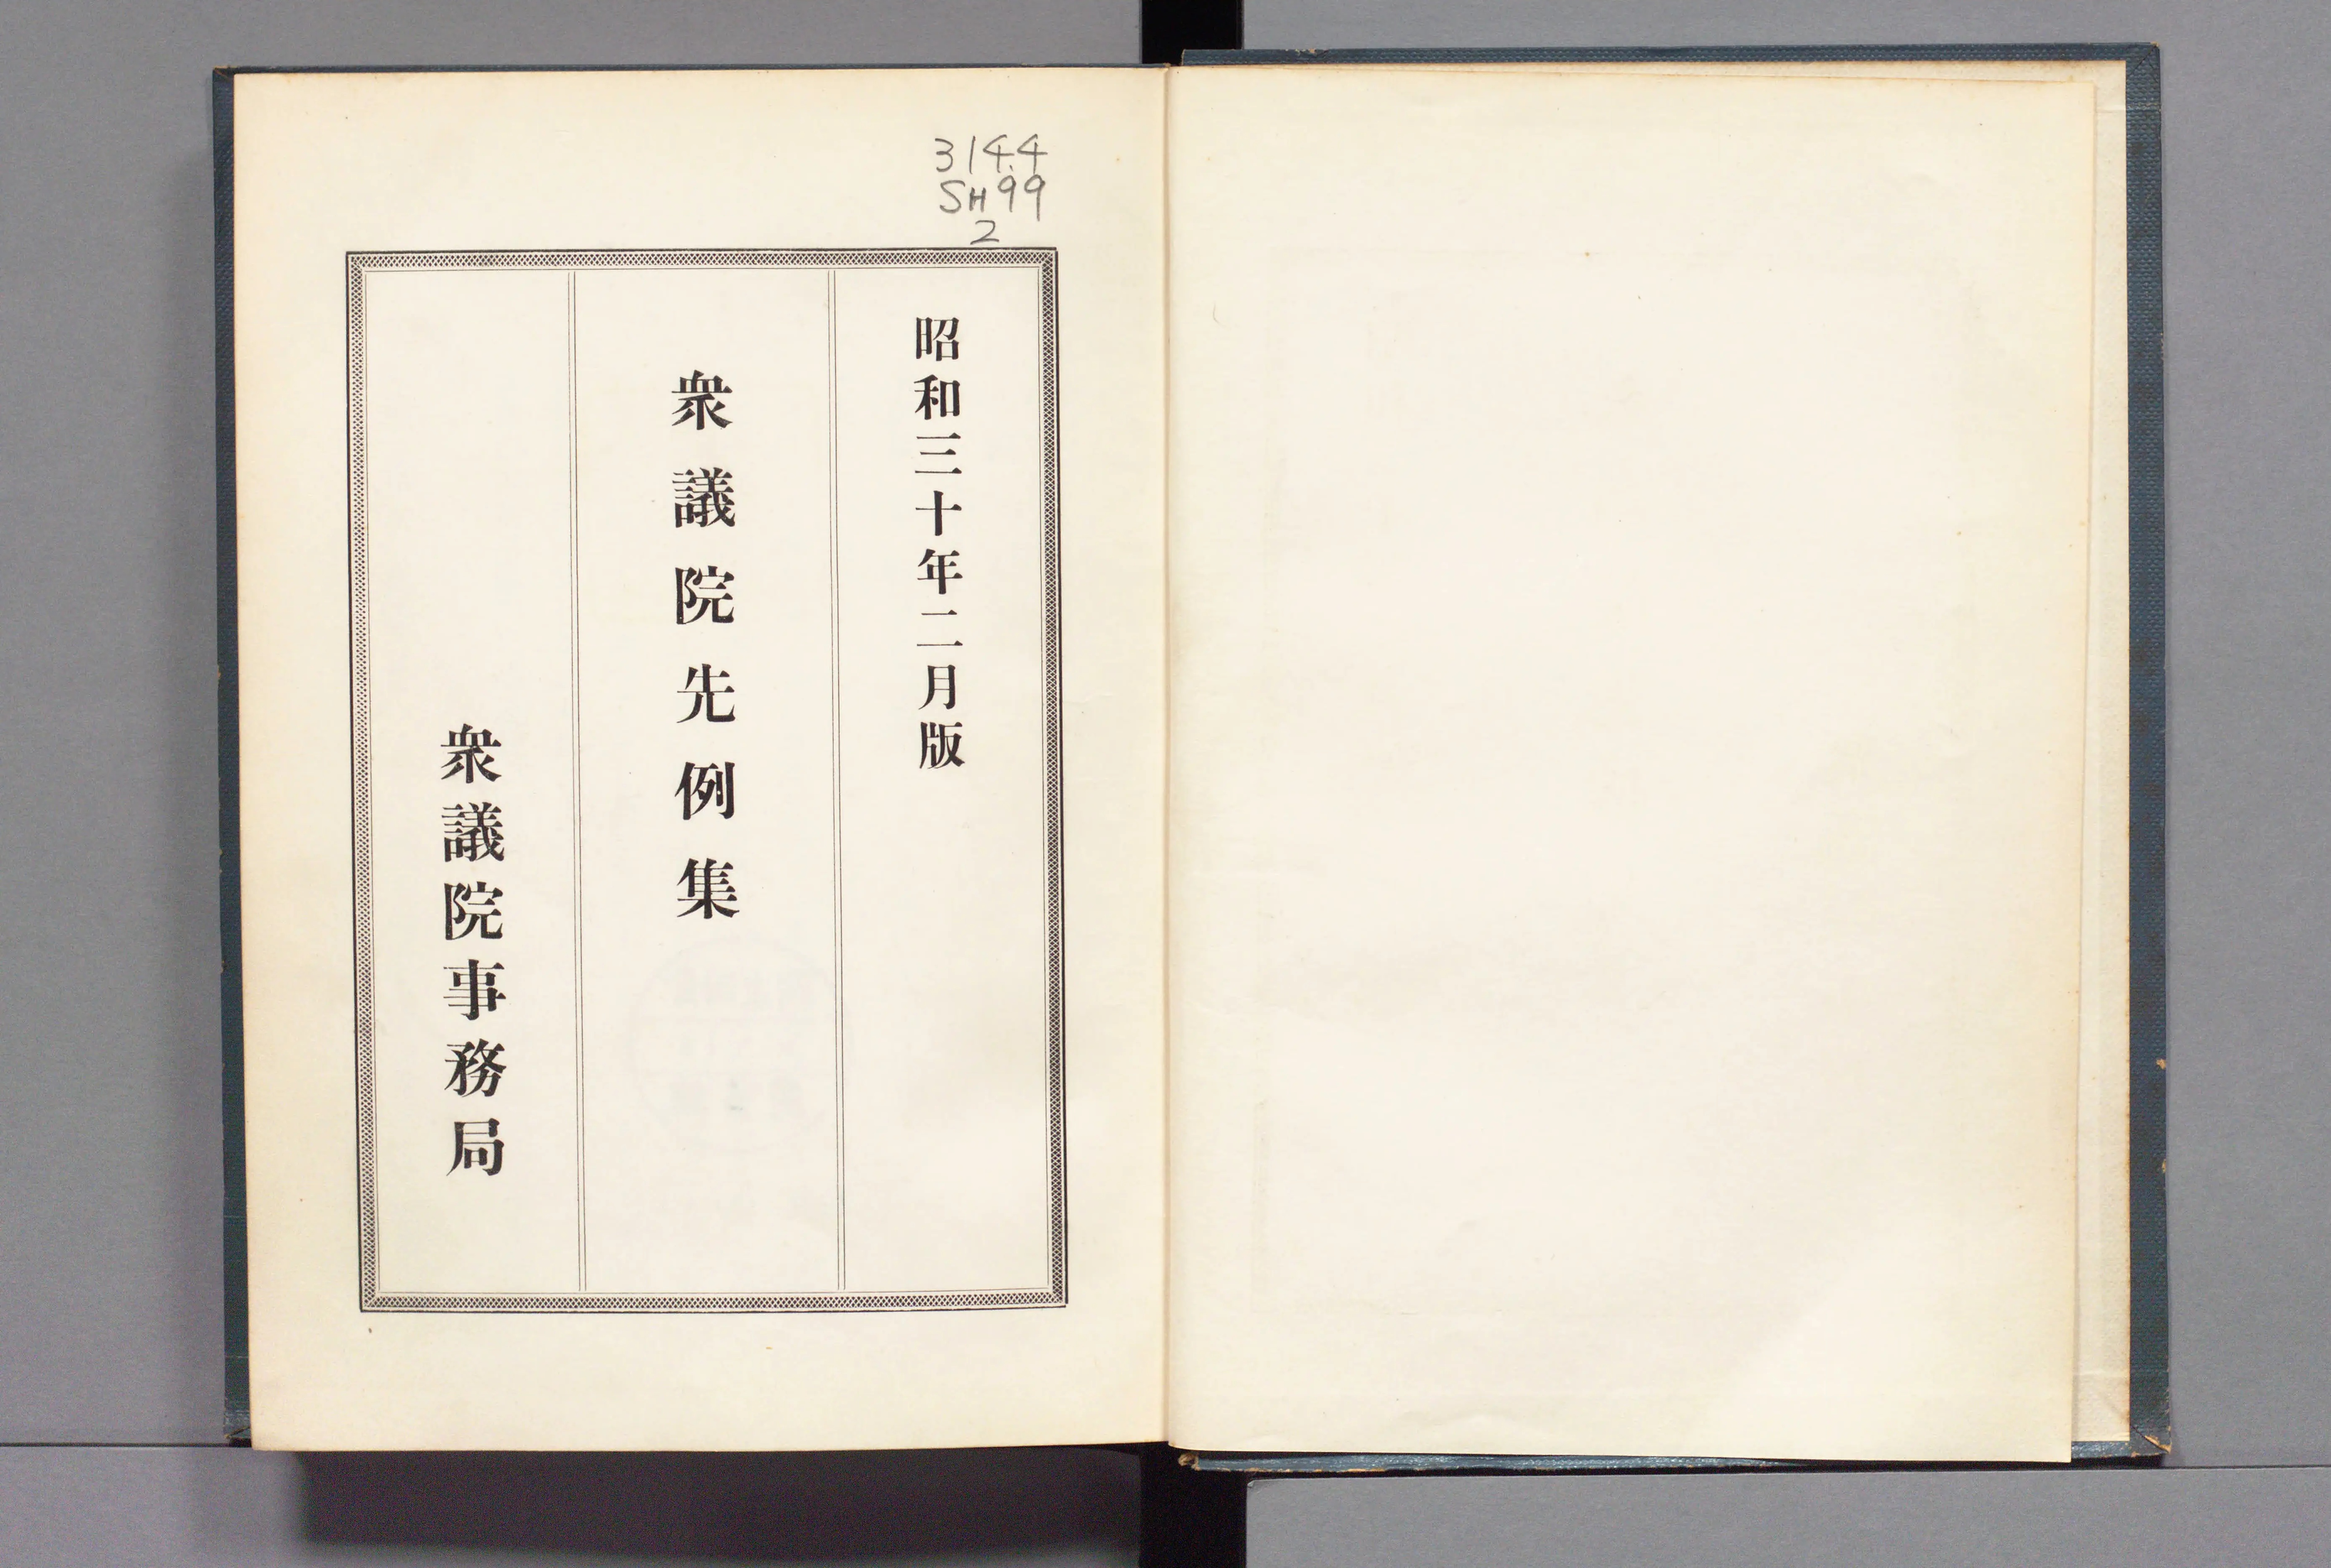 314.4
SH99
2
昭和三十年二月版
衆議院先例集
衆議院事務局